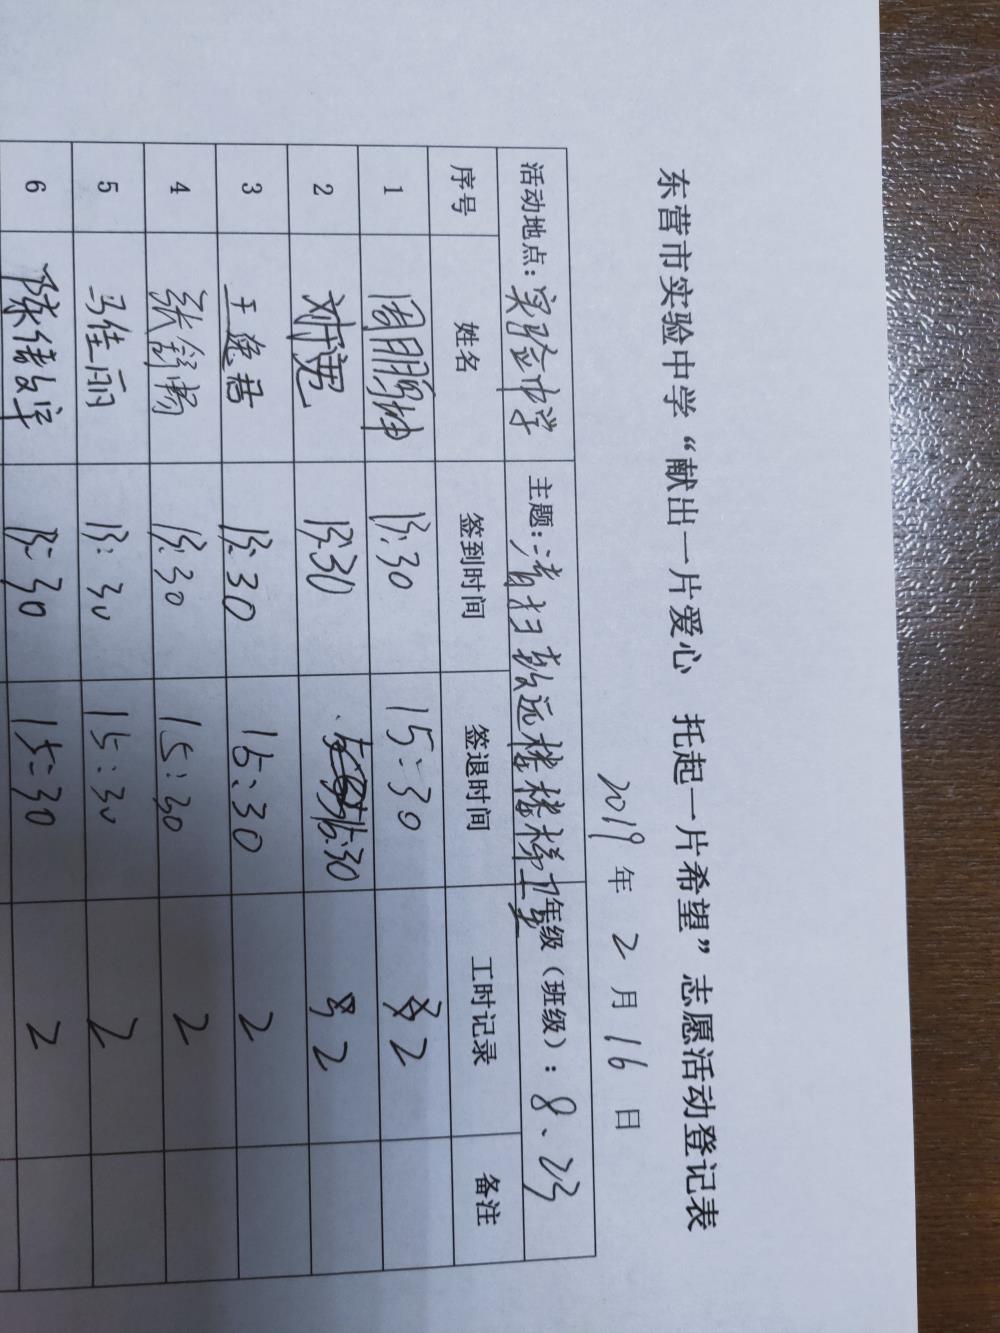 东营市实验中学“献出一片爱心 托起一片希望”志愿活动登记表
2019 年 2 月 16 日
活动地点：实验中学 主题：清扫致远楼楼梯卫生 年级（班级）：8、23
序号 姓名 签到时间 签退时间 工时记录 备注
1 周鹏坤 13:30 15:30 2
2 13:30 15:30 2
3 王逸君 13:30 15:30 2
4 张舒涵 13:30 15:30 2
5 马佳丽 13:30 15:30 2
6 陈绪宇 13:30 15:30 2